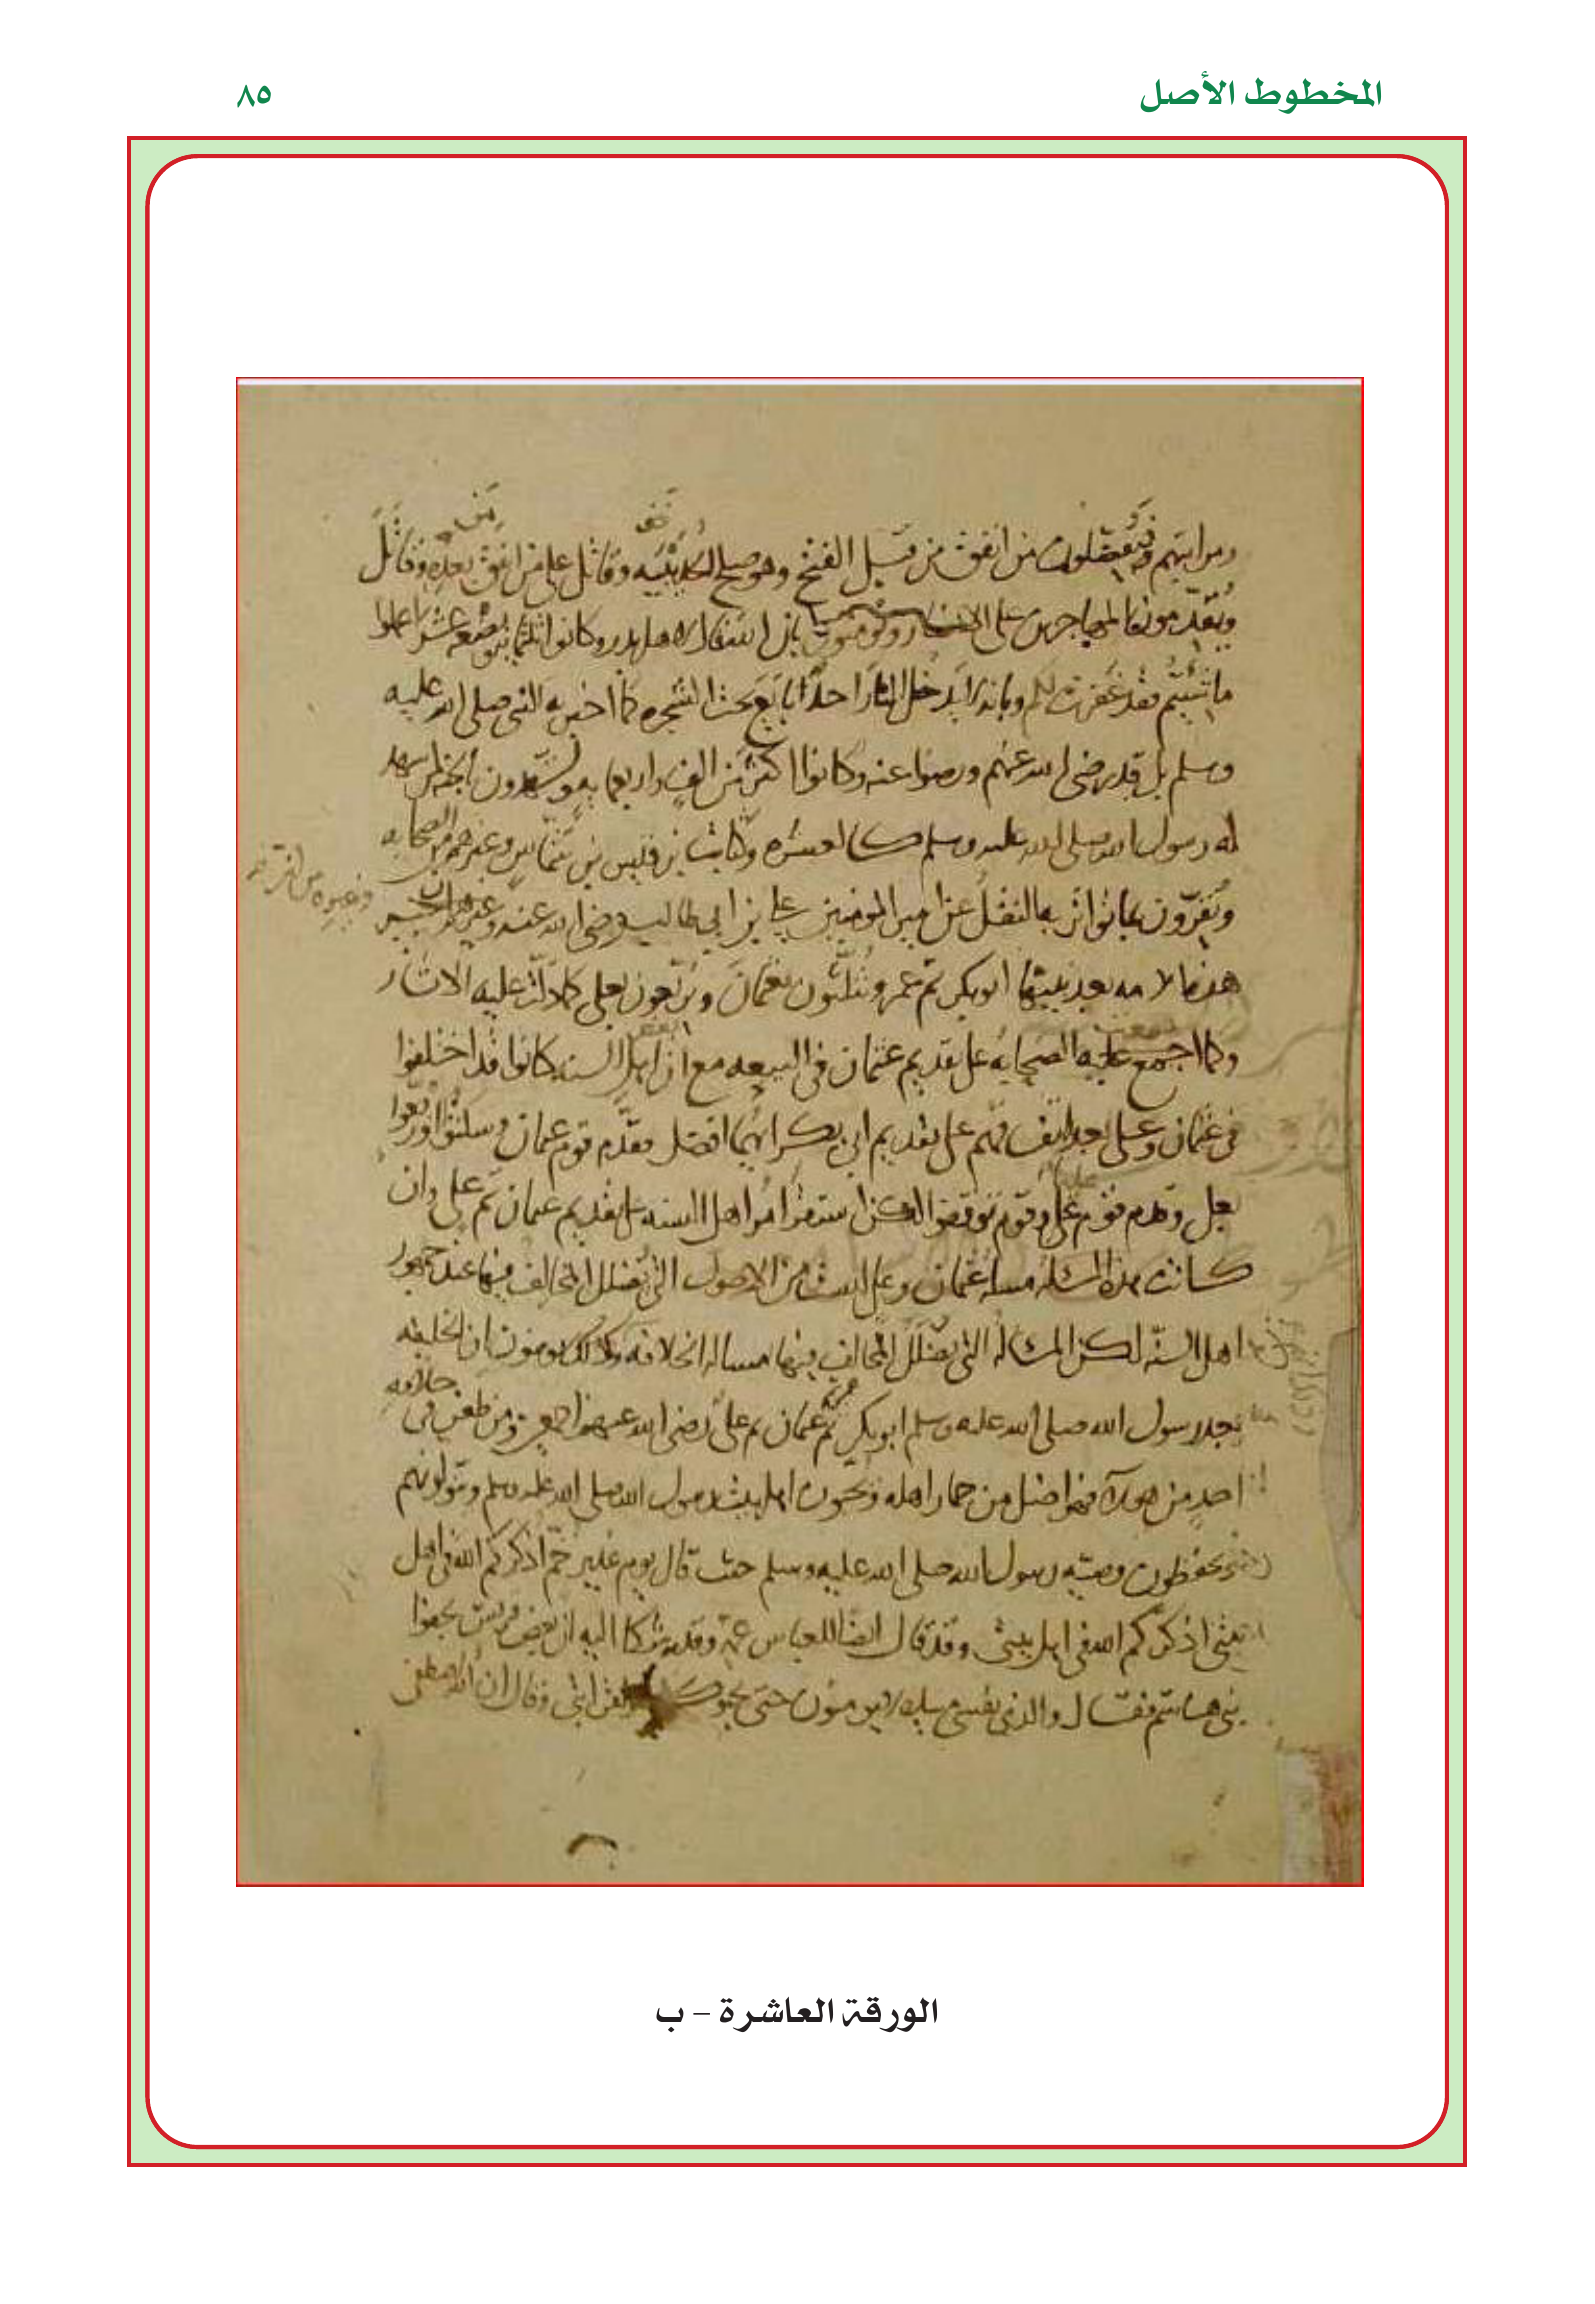 المخطوط الأصل
٨٥
ومراتبهم ويفضلون من انفق من قبل الفتح وهو صلح الحديبيه وقاتل على من انفق بعده وقاتل
ويقدمون المهاجرين على الانصار ويومنون بان الله قال لاهل بدر وكانوا ثلثمايه وبضعه عشر اعملوا
ما شئتم فقد غفرت لكم وبانه لا يدخل النار احد بايع تحت الشجره كما اخبر به النبي صلى الله عليه
وسلم بل قد رضي الله عنهم ورضوا عنه وكانوا اكثر من الف واربعمايه ويشهدون بالجنه لمن شهد
له رسول الله صلى الله عليه وسلم كالعشره وثابت بن قيس بن شماس وغيرهم من الصحابه
ويقرون بما تواتر به النقل عن امير المومنين علي بن ابي طالب رضي الله عنه وغيره ان خير
هذه الامه بعد نبيها ابو بكر ثم عمر ويثلثون بعثمان ويربعون بعلي كما دلت عليه الاثار
وكما اجمع عليه الصحابه على تقديم عثمان في البيعه مع ان بعض اهل السنه كانوا قد اختلفوا
في عثمان وعلي بعد اتفاقهم على تقديم ابي بكر ايهما افضل فقدم قوم عثمان وسكتوا او ربعوا
بعلي وقدم قوم عليا وقوم توقفوا لكن استقر امر اهل السنه على تقديم عثمان ثم علي وان
كانت هذه المسله مسله عثمان وعلي ليست من الاصول التي يضلل المخالف فيها عند جمهور
اهل السنه لكن المساله التي يضلل المخالف فيها مساله الخلافه وذلك بانهم يومنون ان الخليفه
بعد رسول الله صلى الله عليه وسلم ابو بكر ثم عمر ثم عثمان ثم علي رضي الله عنهم ومن طعن في خلافه
احد من هولاء فهو اضل من حمار اهله ويحبون اهل بيت رسول الله صلى الله عليه وسلم ويتولونهم
ويحفظون وصيه رسول الله صلى الله عليه وسلم حيث قال يوم غدير خم اذكركم الله في اهل
بيتي اذكركم الله في اهل بيتي وقد قال ايضا للعباس عمه وقد شكا اليه ان بعض قريش يجفوا
بني هاشم فقال والذي نفسي بيده لا يومنون حتى يحبوكم لله ولقرابتي وقال ان الله اصطفى
الورقة العاشرة – ب